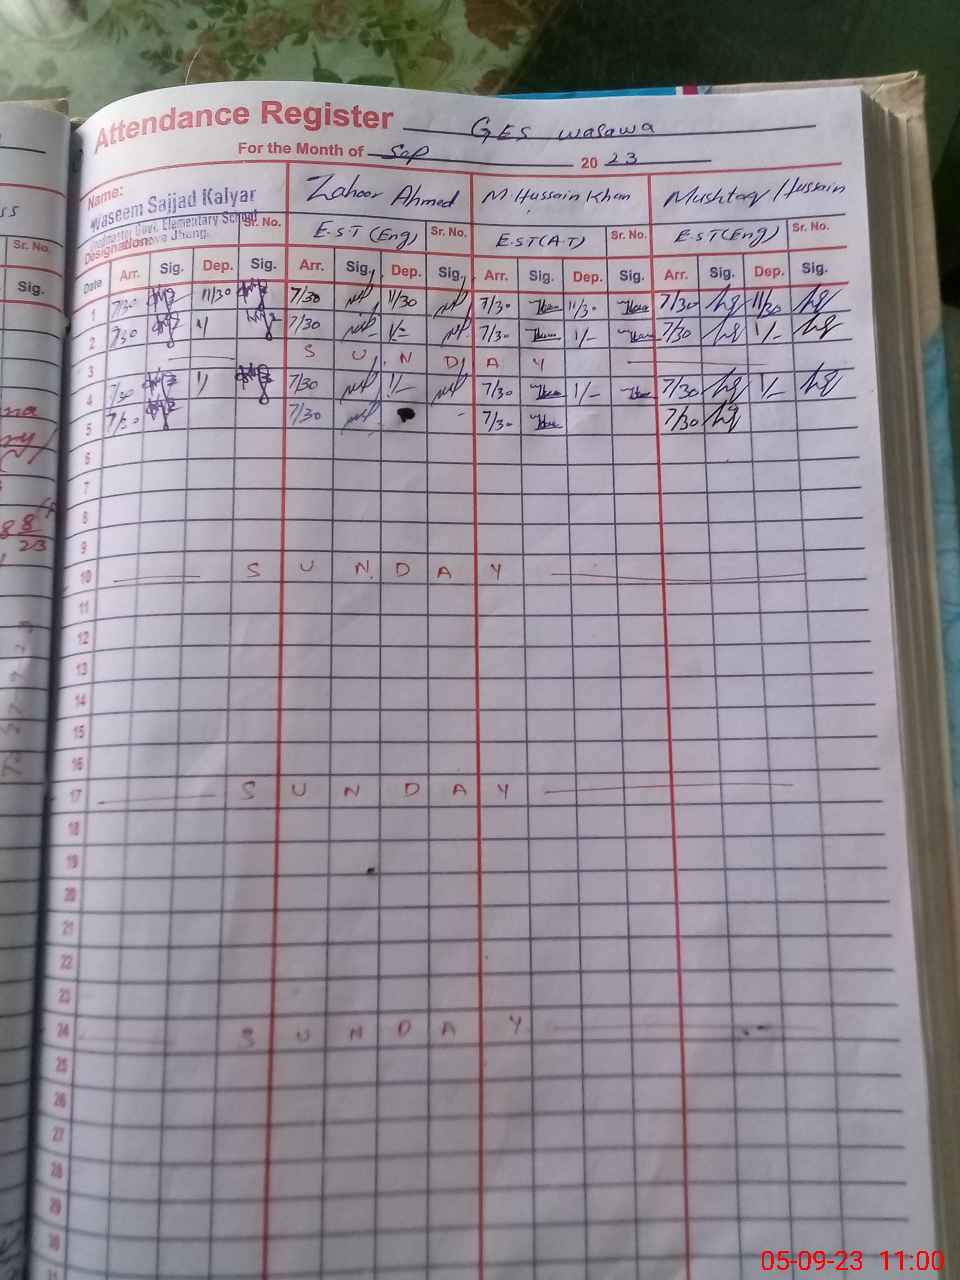 Attendance Register GES wasawa
For the Month of Sep 20 23
Name: Waseem Sajjad Kalyar Zahoor Ahmed M Hussain Khan Mushtaq Hussain
Headmaster Govt. Elementary School
Designation Jhang. Sr. No. E.S.T (Eng) Sr. No. E.S.T (A.T) Sr. No. E.S.T (Eng) Sr. No.
Date Arr. Sig. Dep. Sig. Arr. Sig. Dep. Sig. Arr. Sig. Dep. Sig. Arr. Sig. Dep. Sig.
1 7/30 11/30 7/30 11/30 7/30 11/30 7/30 11/30
2 7/30 7/30 1/- 7/30 1/- 7/30 1/-
3 S U N D A Y
4 7/30 7/30 1/- 7/30 1/- 7/30 1/-
5 7/30 7/30 7/30 7/30
6
7
8
9
10 S U N D A Y
11
12
13
14
15
16
17 S U N D A Y
18
19
20
21
22
23
24 S U N D A Y
25
26
27
28
29
30
Sr. No.
Sig.
8 8/23
05-09-23 11:00